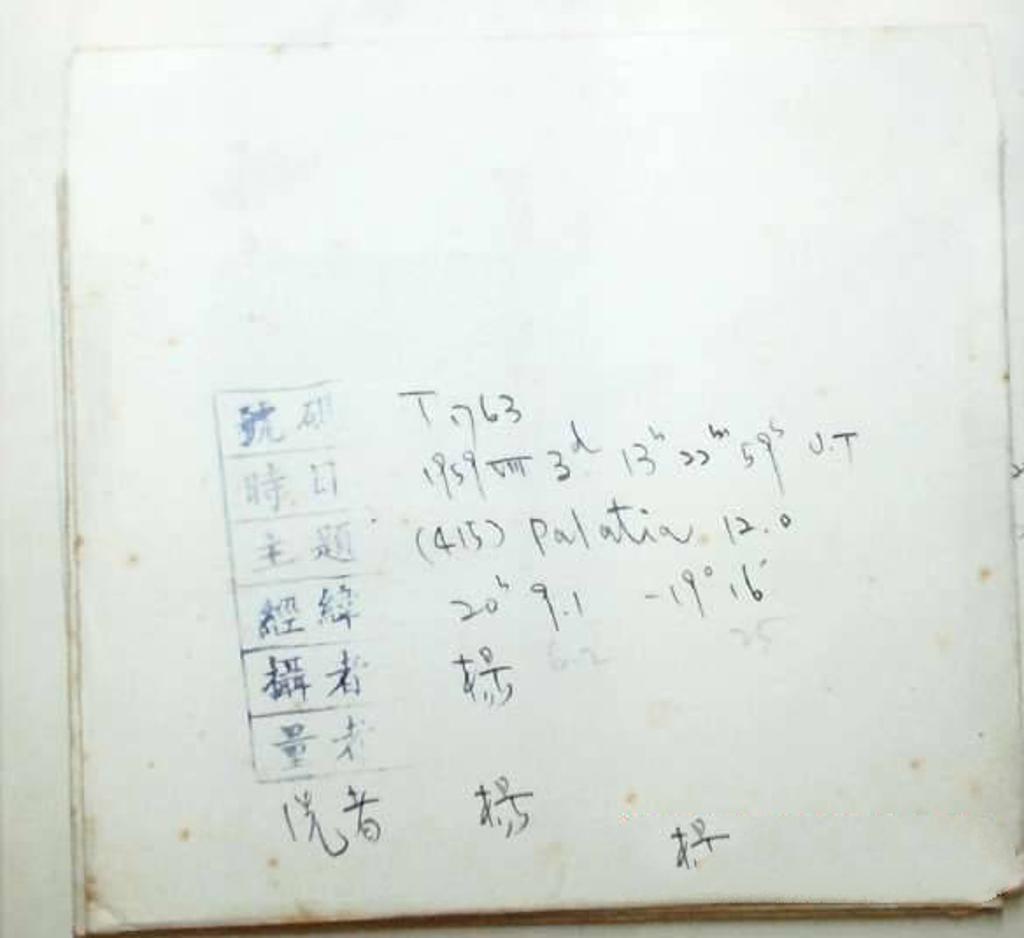 號碼 T.763
時日 1959 VIII 3d 13h 22m 59s U.T
主題 (415) Palatia 12.0
經緯 20h 9.1 -19° 16'
6.2 25
攝者 楊
量者
者 楊